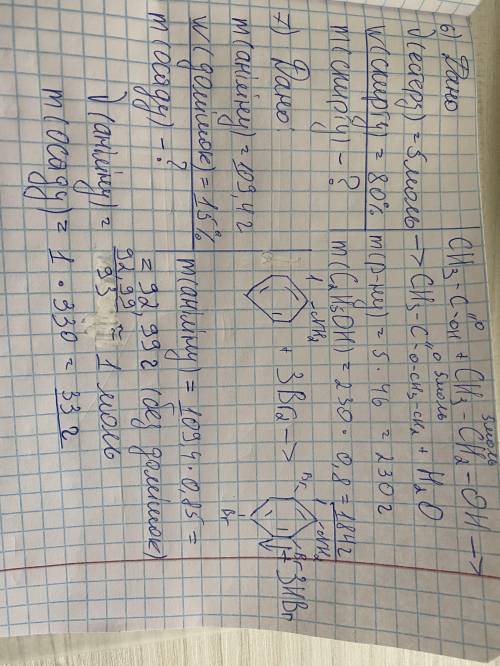 6) Дано
ν(естеру) = 5 моль
W(спирту) = 80%
m(спирту) - ?
5моль
CH3-C-OH + CH3-CH2-OH →
O
5моль
→ CH3-C-O-CH3-CH2 + H2O
O
m(р-ну) = 5 · 46 = 230г
m(C2H5OH) = 230 · 0,8 = 184г
7) Дано:
m(аніліну) = 109,4г
W(домішок) = 15%
m(осаду) - ?
NH2
+ 3Br2 →
NH2
Br
Br
Br
+ 3HBr
m(аніліну) = 1094 · 0.85 =
= 92,99г (без домішок)
ν(аніліну) = 92,99 / 93 ≈ 1 моль
m(осаду) = 1 · 330 = 33г